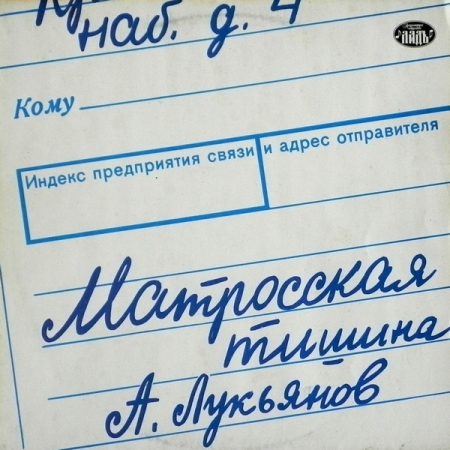 наб. д. 4
Кому
Индекс предприятия связи и адрес отправителя
Матросская
тишина
А. Лукьянов
ЛАДЪ